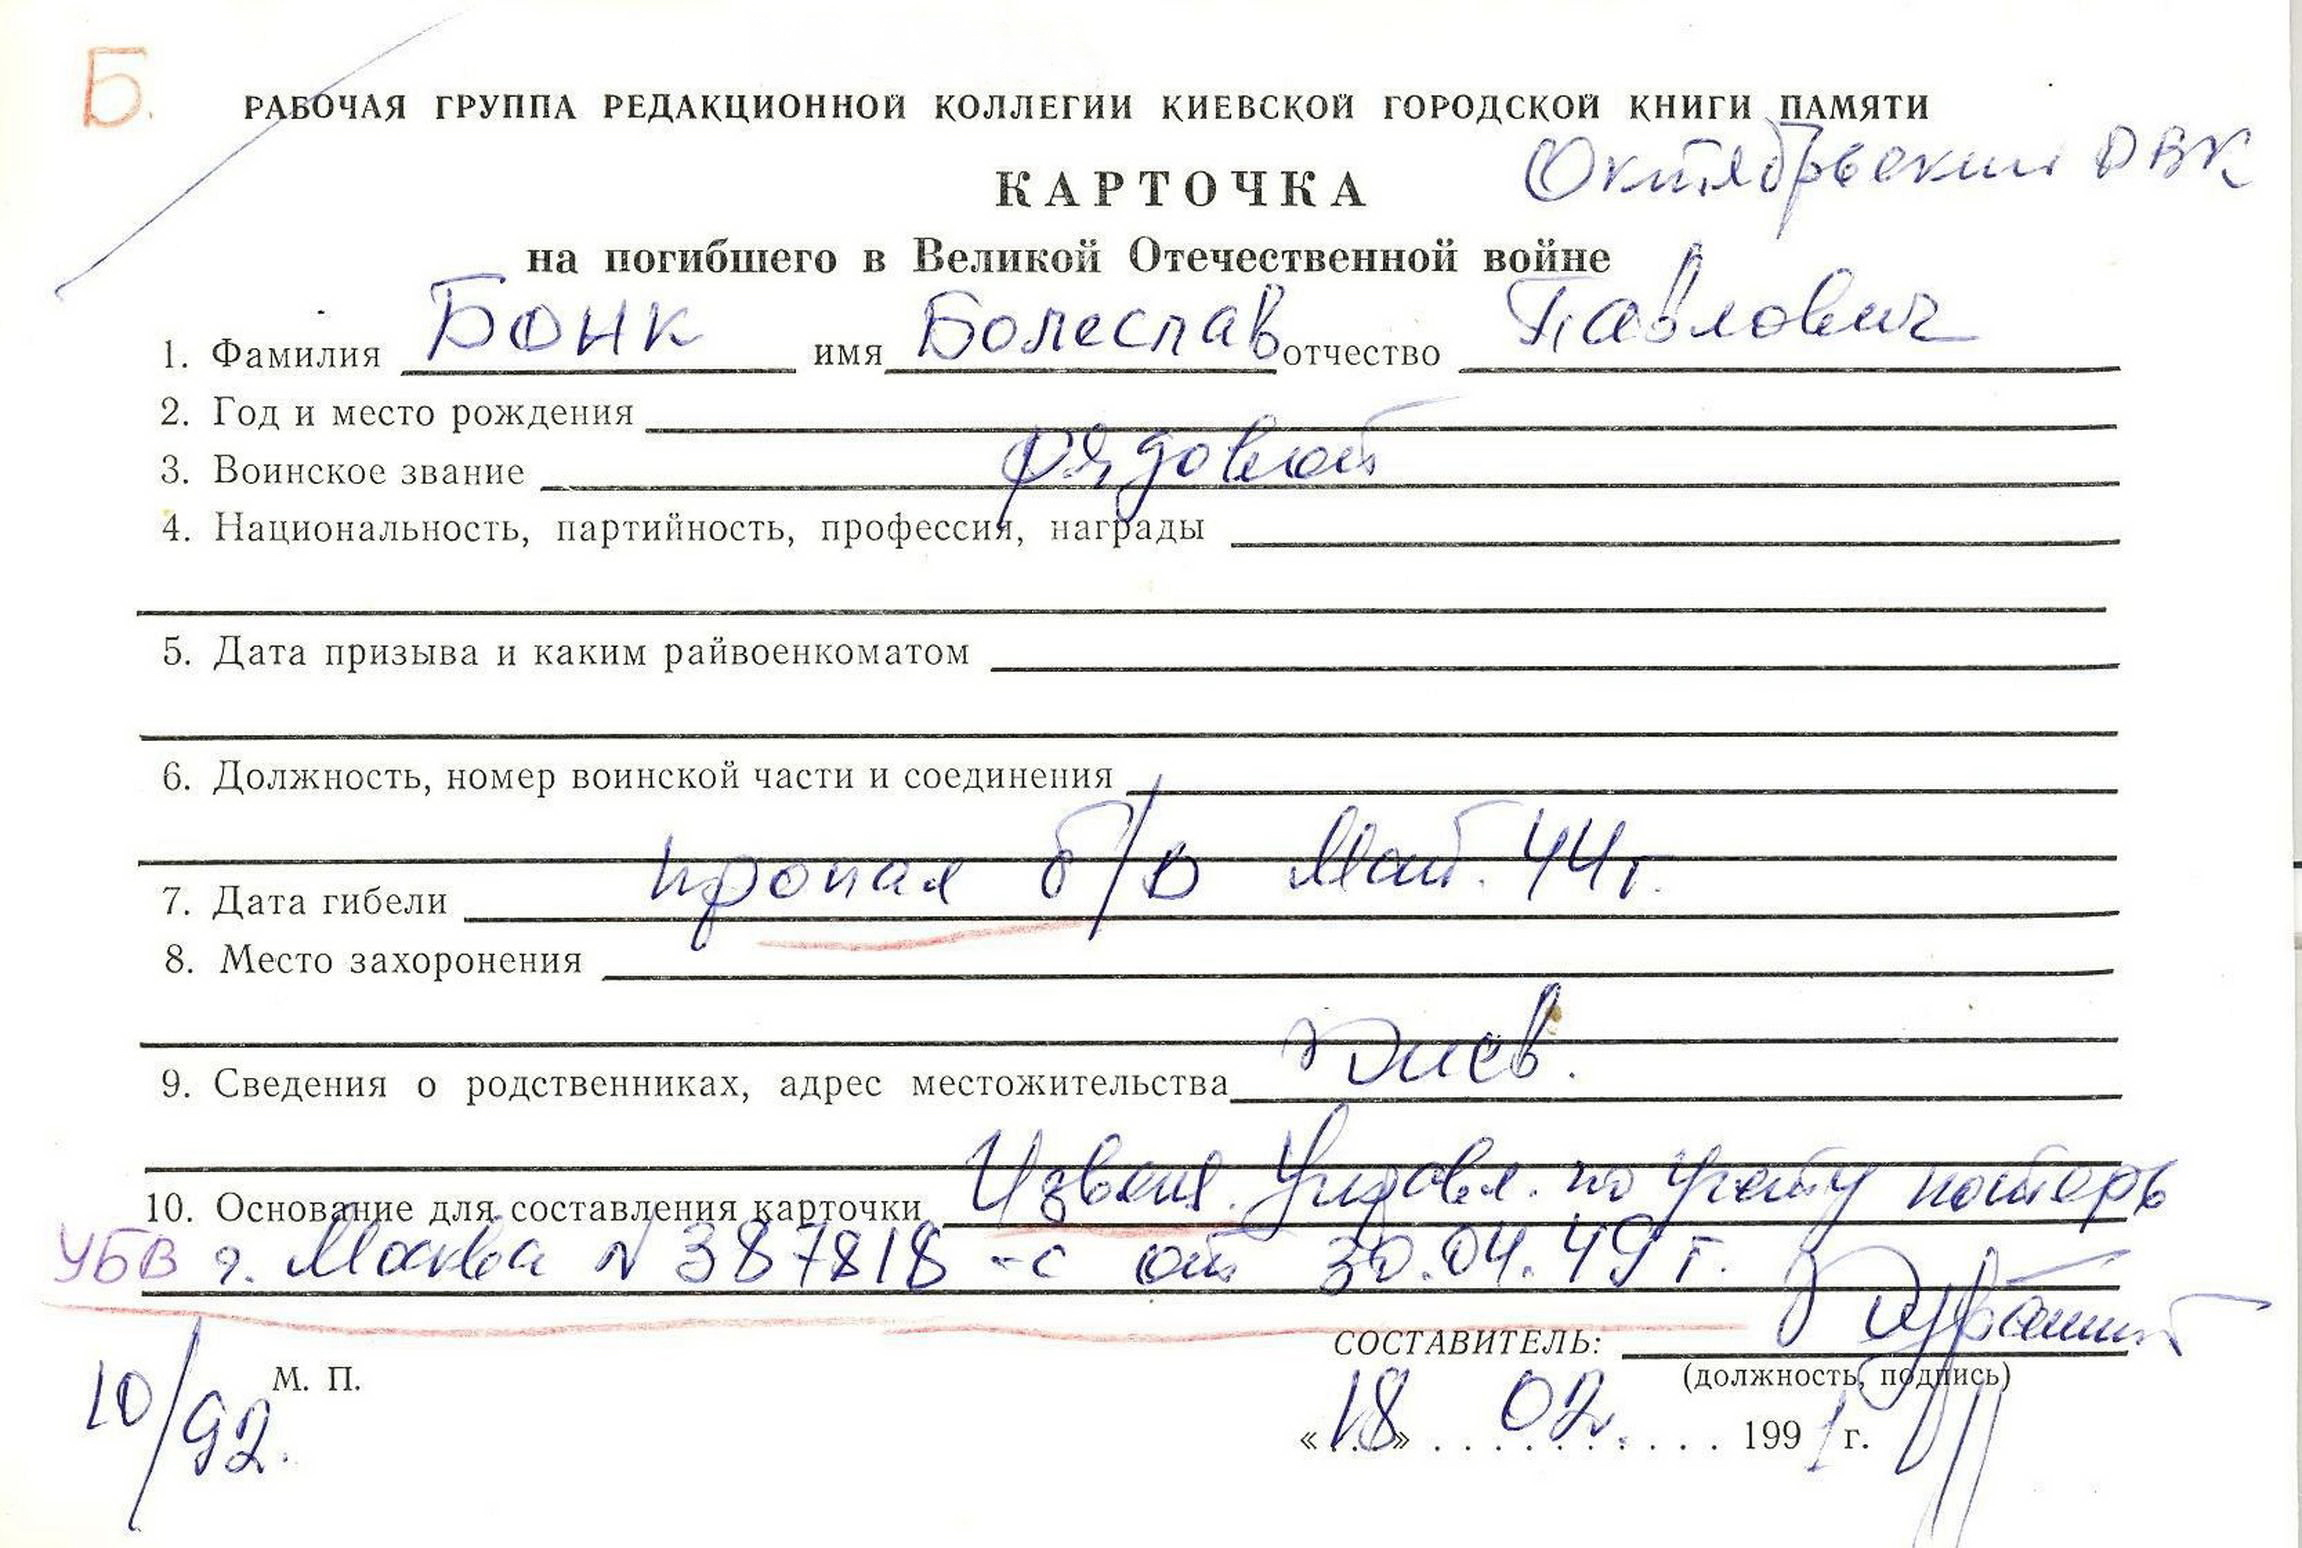 Б.
РАБОЧАЯ ГРУППА РЕДАКЦИОННОЙ КОЛЛЕГИИ КИЕВСКОЙ ГОРОДСКОЙ КНИГИ ПАМЯТИ
Октябрьский РВК
КАРТОЧКА
на погибшего в Великой Отечественной войне
1. Фамилия БОНК имя Болеслав отчество Павлович
2. Год и место рождения
3. Воинское звание рядовой
4. Национальность, партийность, профессия, награды
5. Дата призыва и каким райвоенкоматом
6. Должность, номер воинской части и соединения
7. Дата гибели пропал б/в Май. 44г.
8. Место захоронения
9. Сведения о родственниках, адрес местожительства Киев.
10. Основание для составления карточки Извещ. Управл. по учету потерь
УБВ г. Москва N 387818-с от 30.04.49 г.
СОСТАВИТЕЛЬ:
(должность, подпись)
10/92.
М. П.
«18» 02. 1991 г.